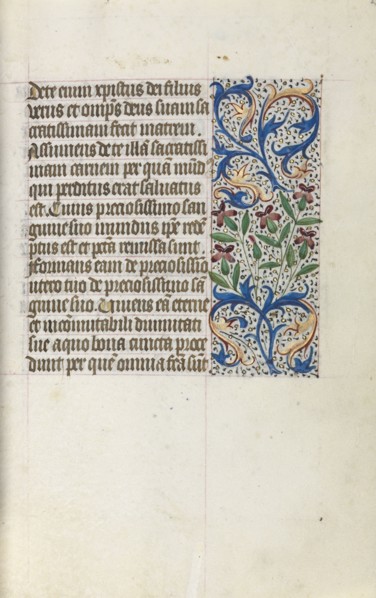 De te enim xpistus dei filius
verus et omīps deus suam sa
cratissimam fecit matrem.
Assumens de te illā sacratissi
mam carnem per quā mūd⁹
qui perditus erat saluatus
est. Cuius preciosissimo san
guine suo mundus ip̄e redē
ptus est et pctā remissa sunt.
Formans eam de preciosissimo
utero tuo de preciosissimo sā
guine suo. Uniens eā eterne
et incōmutabili diuinitati
sue a quo bona cuncta proce
dunt per quē omnia fcā sūt